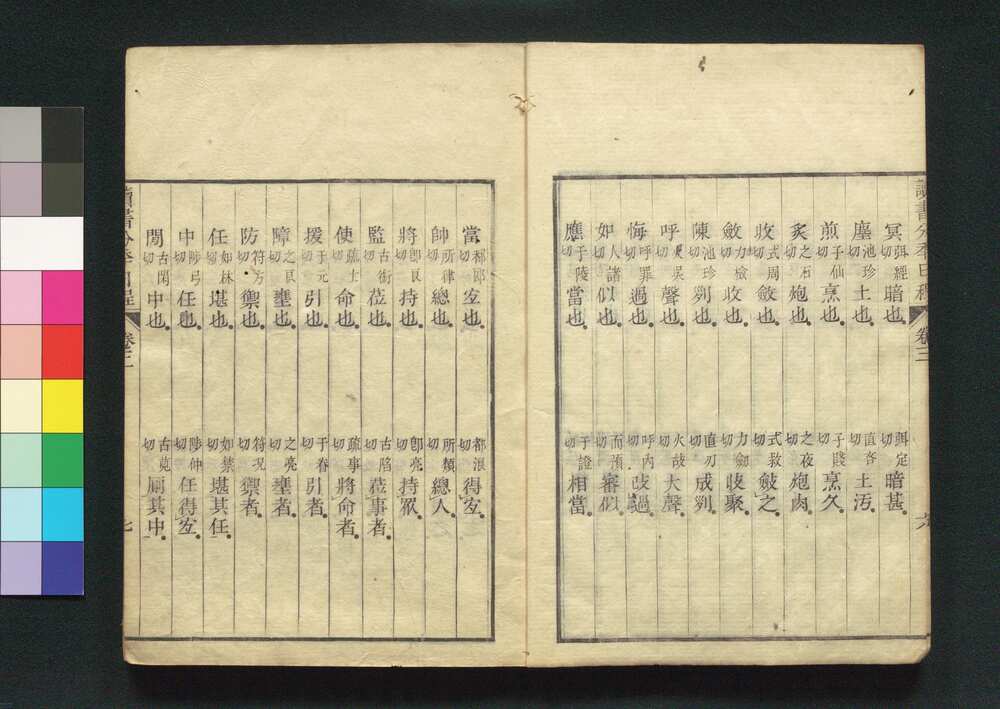 讀書分年日程 卷三 六
冥 弭經切 暗也。 弭定切 暗甚。
塵 池珍切 土也。 直吝切 土汚。
煎 子仙切 烹也。 子賤切 烹久。
炙 之石切 炮也。 之夜切 炮肉。
收 式周切 斂也。 式救切 斂之。
斂 力檢切 收也。 力劒切 收聚。
陳 池珍切 列也。 直刃切 成列。
呼 火吳切 聲也。 火故切 大聲。
悔 呼罪切 過也。 呼內切 改過。
如 人諸切 似也。 而預切 審似。
應 于陵切 當也。 于證切 相當。
當 都郎切 宜也。 都浪切 得宜。
帥 所律切 總也。 所類切 總人。
將 卽良切 持也。 卽亮切 持眾。
監 古銜切 莅也。 古陷切 莅事者。
使 疏士切 命也。 疏事切 將命者。
援 于元切 引也。 于眷切 引者。
障 之良切 壅也。 之亮切 壅者。
防 符方切 禦也。 符况切 禦者。
任 如林切 堪也。 如禁切 堪其任。
中 陟弓切 任也。 陟仲切 任得宜。
閒 古閑切 中也。 古莧切 厠其中。
讀書分年日程 卷三 七